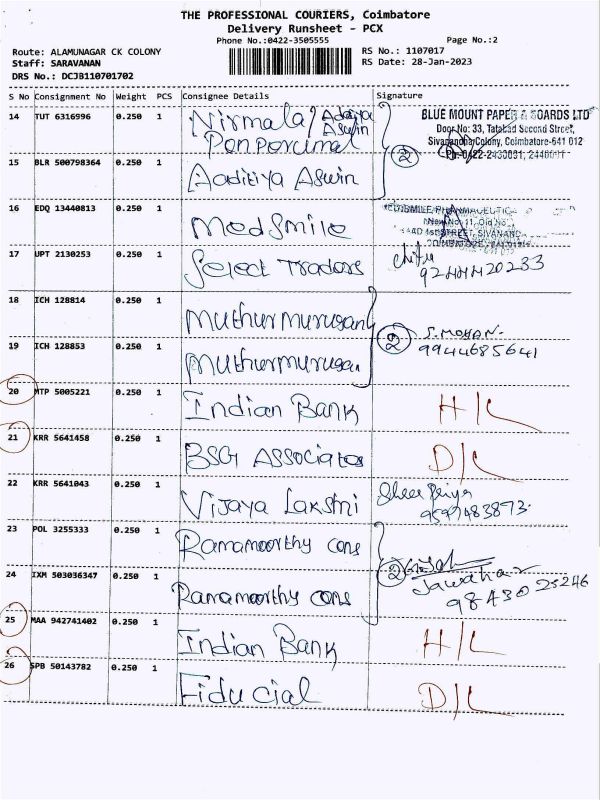 THE PROFESSIONAL COURIERS, Coimbatore
Delivery Runsheet - PCX
Phone No.:0422-3505555 Page No.:2
Route: ALAMUNAGAR CK COLONY RS No.: 1107017
Staff: SARAVANAN RS Date: 28-Jan-2023
DRS No.: DCJB110701702
S No Consignment No Weight PCS Consignee Details Signature
14 TUT 6316996 0.250 1 Nirmala / Aditya Aswin
Ponperumal
BLUE MOUNT PAPER & BOARDS LTD
Door No: 33, Tatabad Second Street,
Sivanandha Colony, Coimbatore-641 012
15 BLR 500798364 0.250 1 Aaditiya Aswin 2
16 EDQ 13440813 0.250 1 Medsmile
17 UPT 2130253 0.250 1 Select Traders
18 ICH 128814 0.250 1 Muthurmurugan 2 S. MOHAN-
9944685641
19 ICH 128853 0.250 1 Muthurmurugan
20 MTP 5005221 0.250 1 Indian Bank H/L
21 KRR 5641458 0.250 1 BSG Associates D/L
22 KRR 5641043 0.250 1 Vijaya Lakshmi
23 POL 3255333 0.250 1 Ramamoorthy cons
24 IXM 503036347 0.250 1 Ramamoorthy cons 2 Jawahar
98430 25246
25 MAA 942741402 0.250 1 Indian Bank H/L
26 SPB 50143782 0.250 1 Fiducial D/L